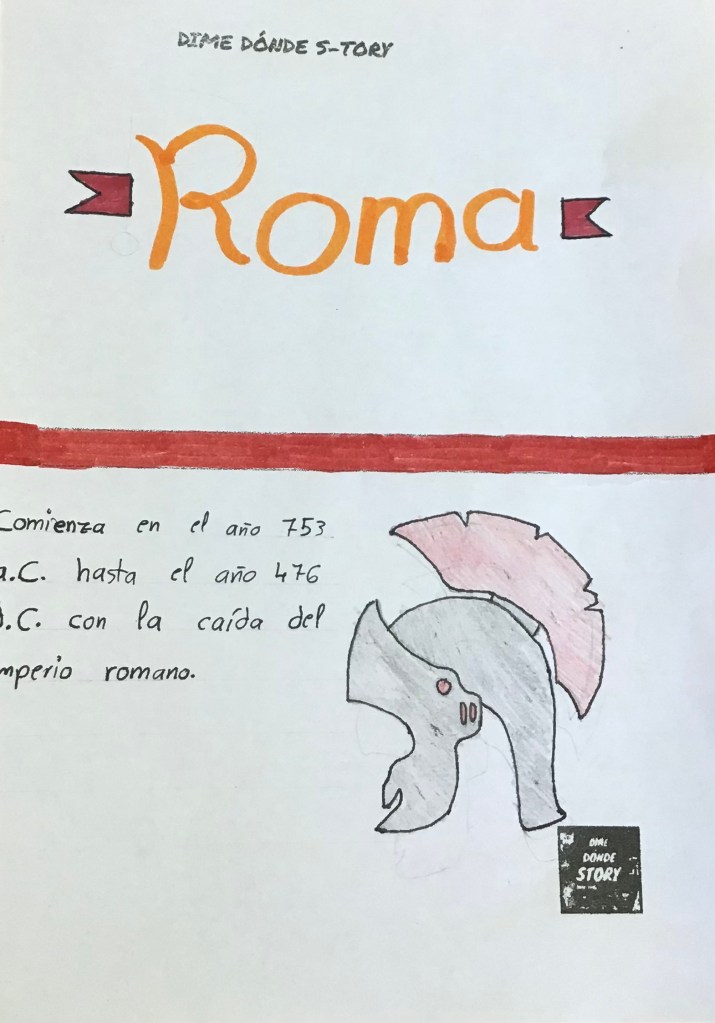 DIME DÓNDE S-TORY
Roma
Comienza en el año 753
a.C. hasta el año 476
d.C. con la caída del
imperio romano.
DIME
DÓNDE
STORY